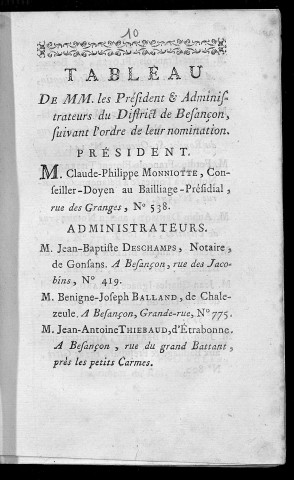 10
TABLEAU
DE MM. les Préſident & Adminiſ-
trateurs du Diſtrict de Beſançon,
ſuivant l'ordre de leur nomination.
PRÉSIDENT.
M. Claude-Philippe MONNIOTTE, Con-
ſeiller-Doyen au Bailliage-Préſidial,
rue des Granges, N° 538.
ADMINISTRATEURS.
M. Jean-Baptiſte DESCHAMPS, Notaire,
de Gonſans. A Beſançon, rue des Jaco-
bins, N° 419.
M. Benigne-Joſeph BALLAND, de Chale-
zeule. A Beſançon, Grande-rue, N° 775.
M. Jean-Antoine THIEBAUD, d'Étrabonne.
A Beſançon, rue du grand Battant,
près les petits Carmes.